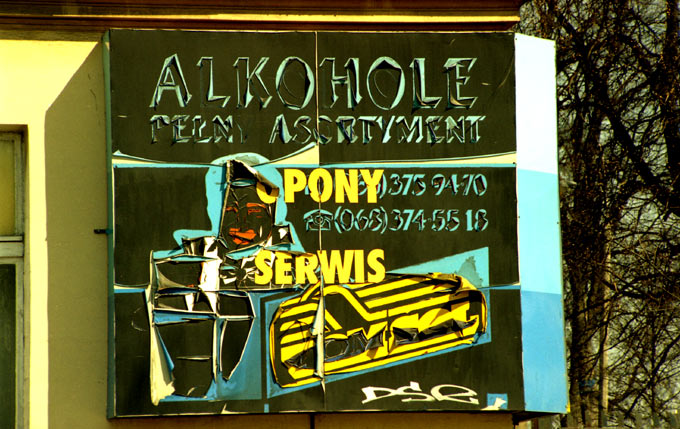 ALKOHOLE
PEŁNY ASORTYMENT
OPONY )375 94-70
(068)374-55 18
SERWIS